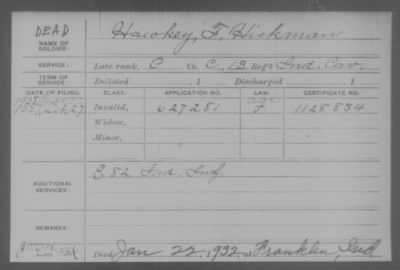 DEAD
NAME OF SOLDIER:
Hawkey, F. Hickman
SERVICE:
Late rank, P Co. C, 13 Reg't Ind. Cav.
TERM OF SERVICE:
Enlisted , 1 Discharged , 1
DATE OF FILING. CLASS. APPLICATION NO. LAW. CERTIFICATE NO.
Invalid, 627281 1128834
Widow,
Minor,
ADDITIONAL SERVICES:
E 82 Ind. Inf.
REMARKS:
Died Jan 22, 1932, at Franklin, Ind